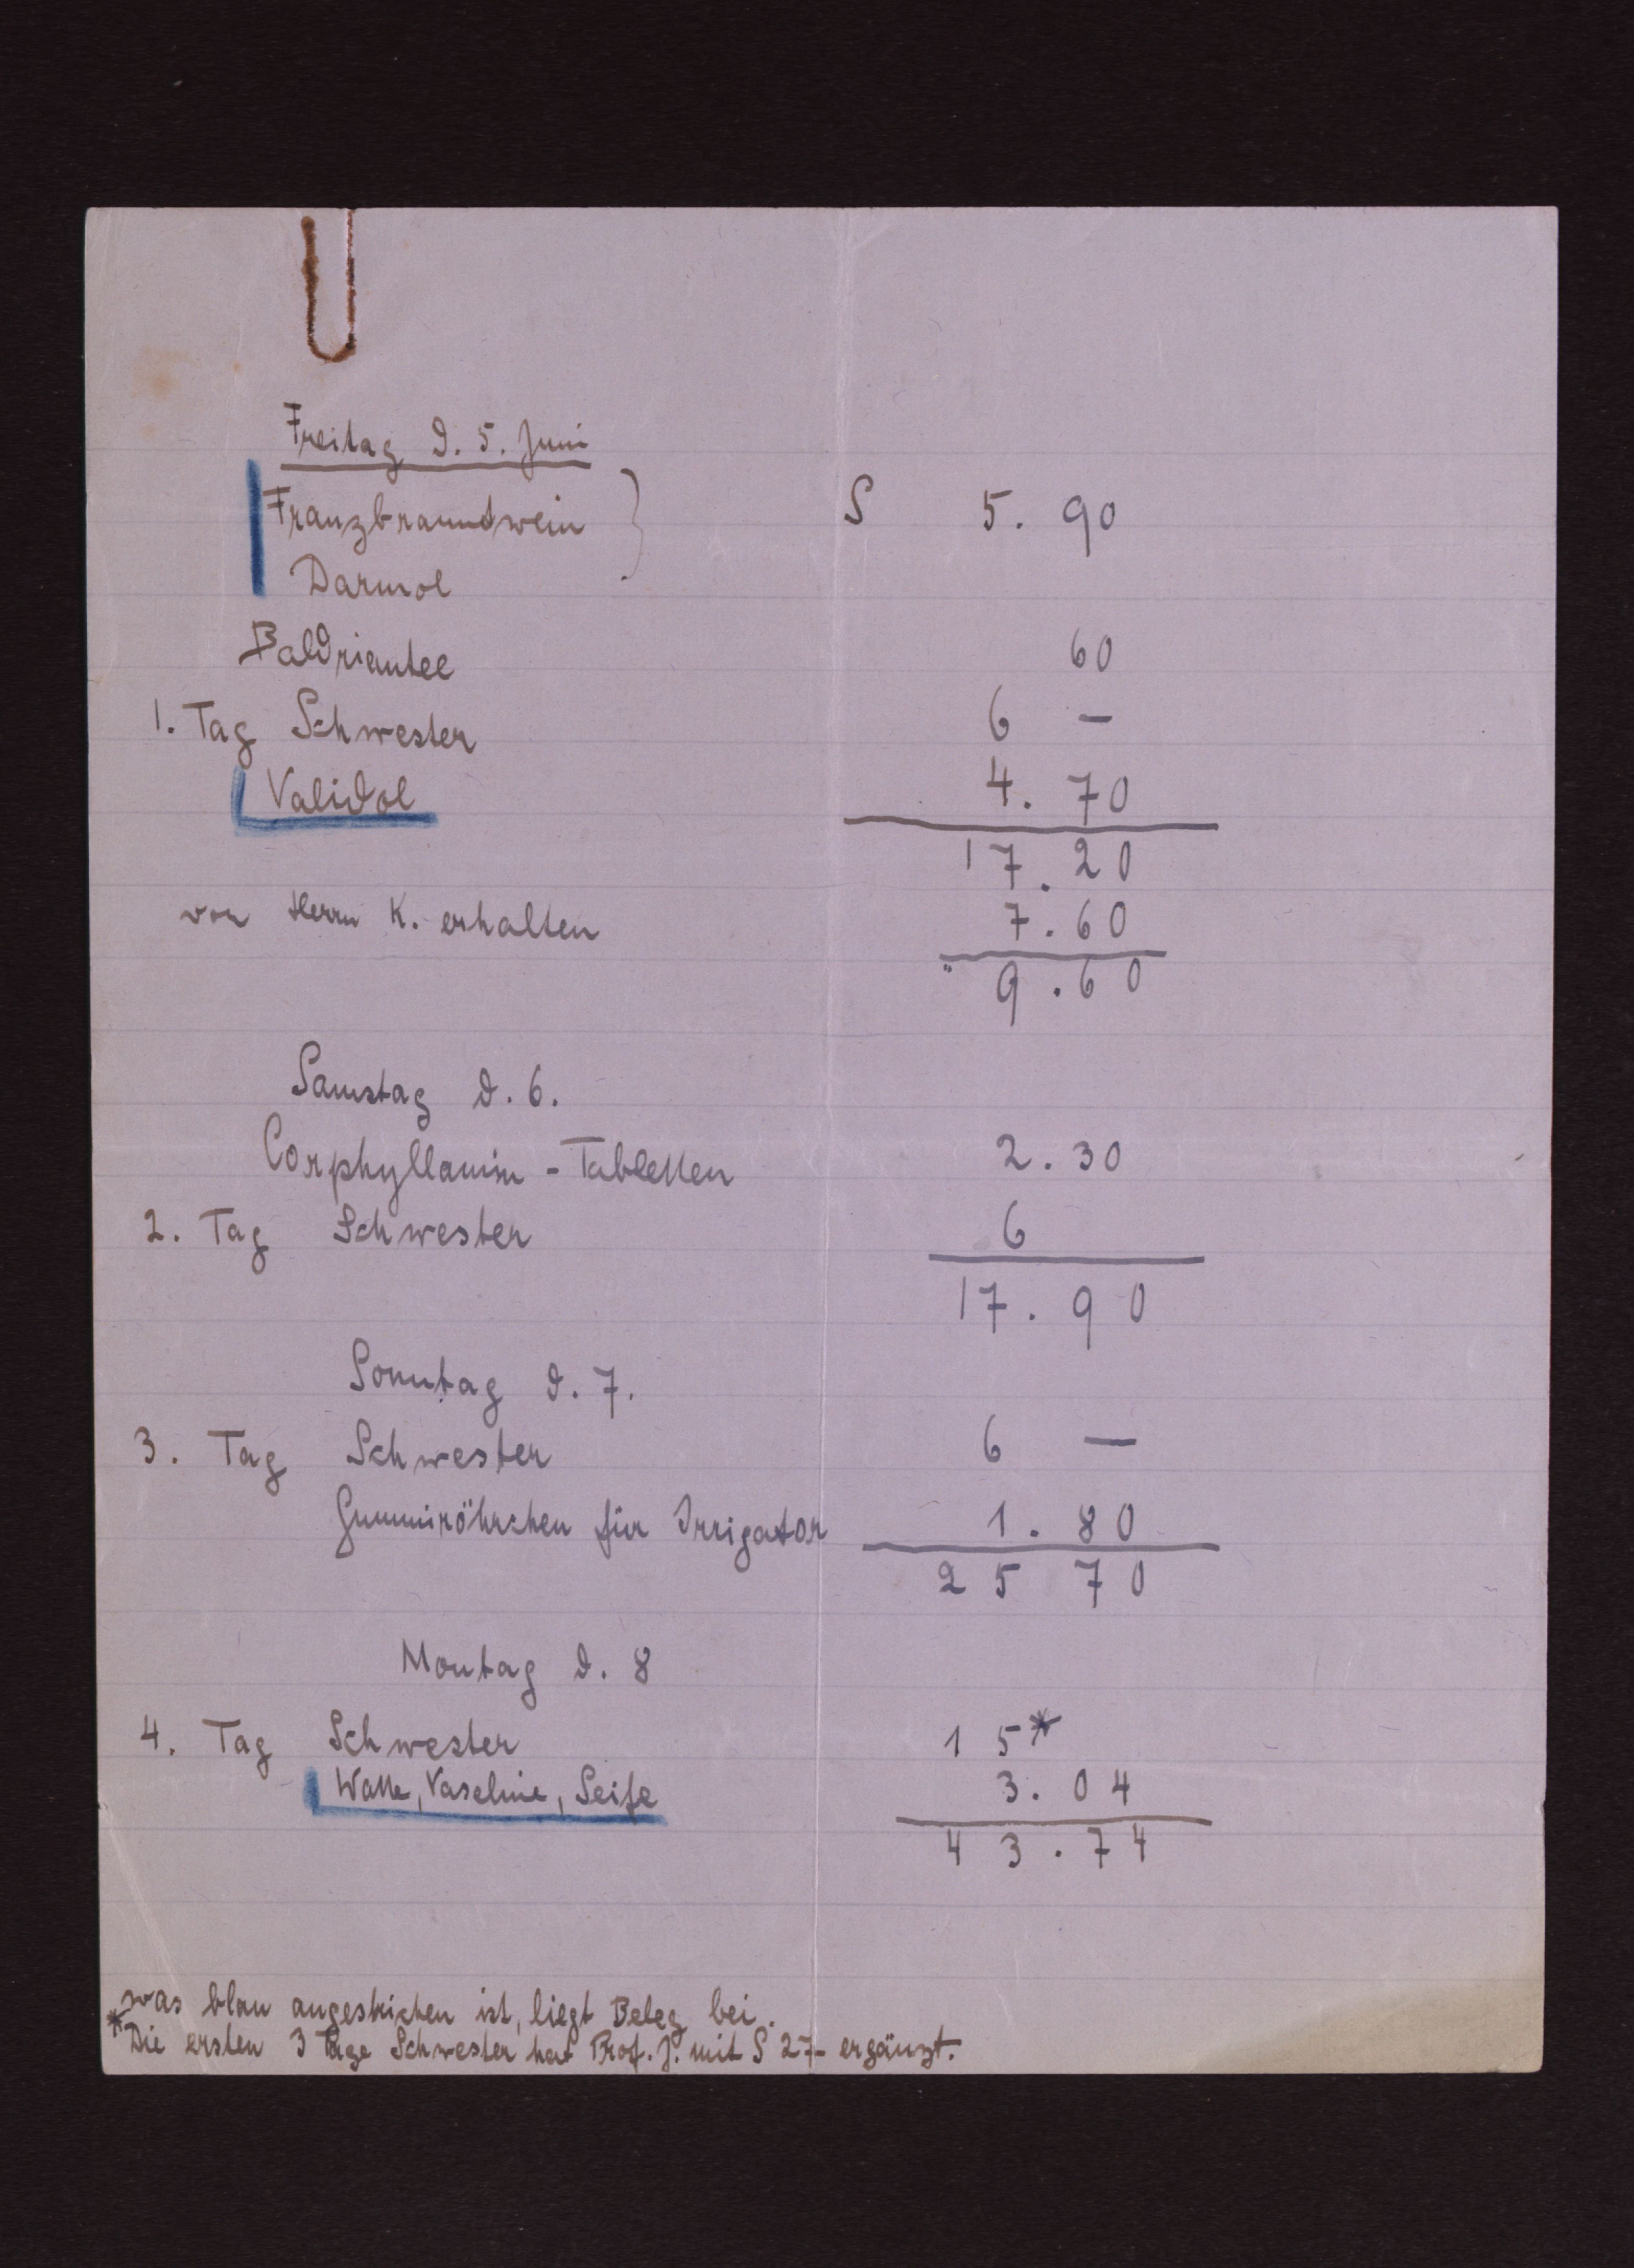 Freitag d. 5. Juni
Franzbranndwein } S 5. 90
Darmol
Baldriantee 60
1. Tag Schwester 6 —
Validol 4. 70
17. 20
von Herrn K. erhalten 7. 60
" 9. 60
Samstag d. 6.
Corphyllamin - Tabletten 2. 30
2. Tag Schwester 6
17. 90
Sonntag d. 7.
3. Tag Schwester 6 —
Gummiröhrchen für Irrigator 1. 80
25 70
Montag d. 8
4. Tag Schwester 15*
Watte, Vaseline, Seife 3. 04
43. 74
was blau angestrichen ist, liegt Beleg bei.
* Die ersten 3 Tage Schwester hat Prof. J. mit S 27- ergänzt.